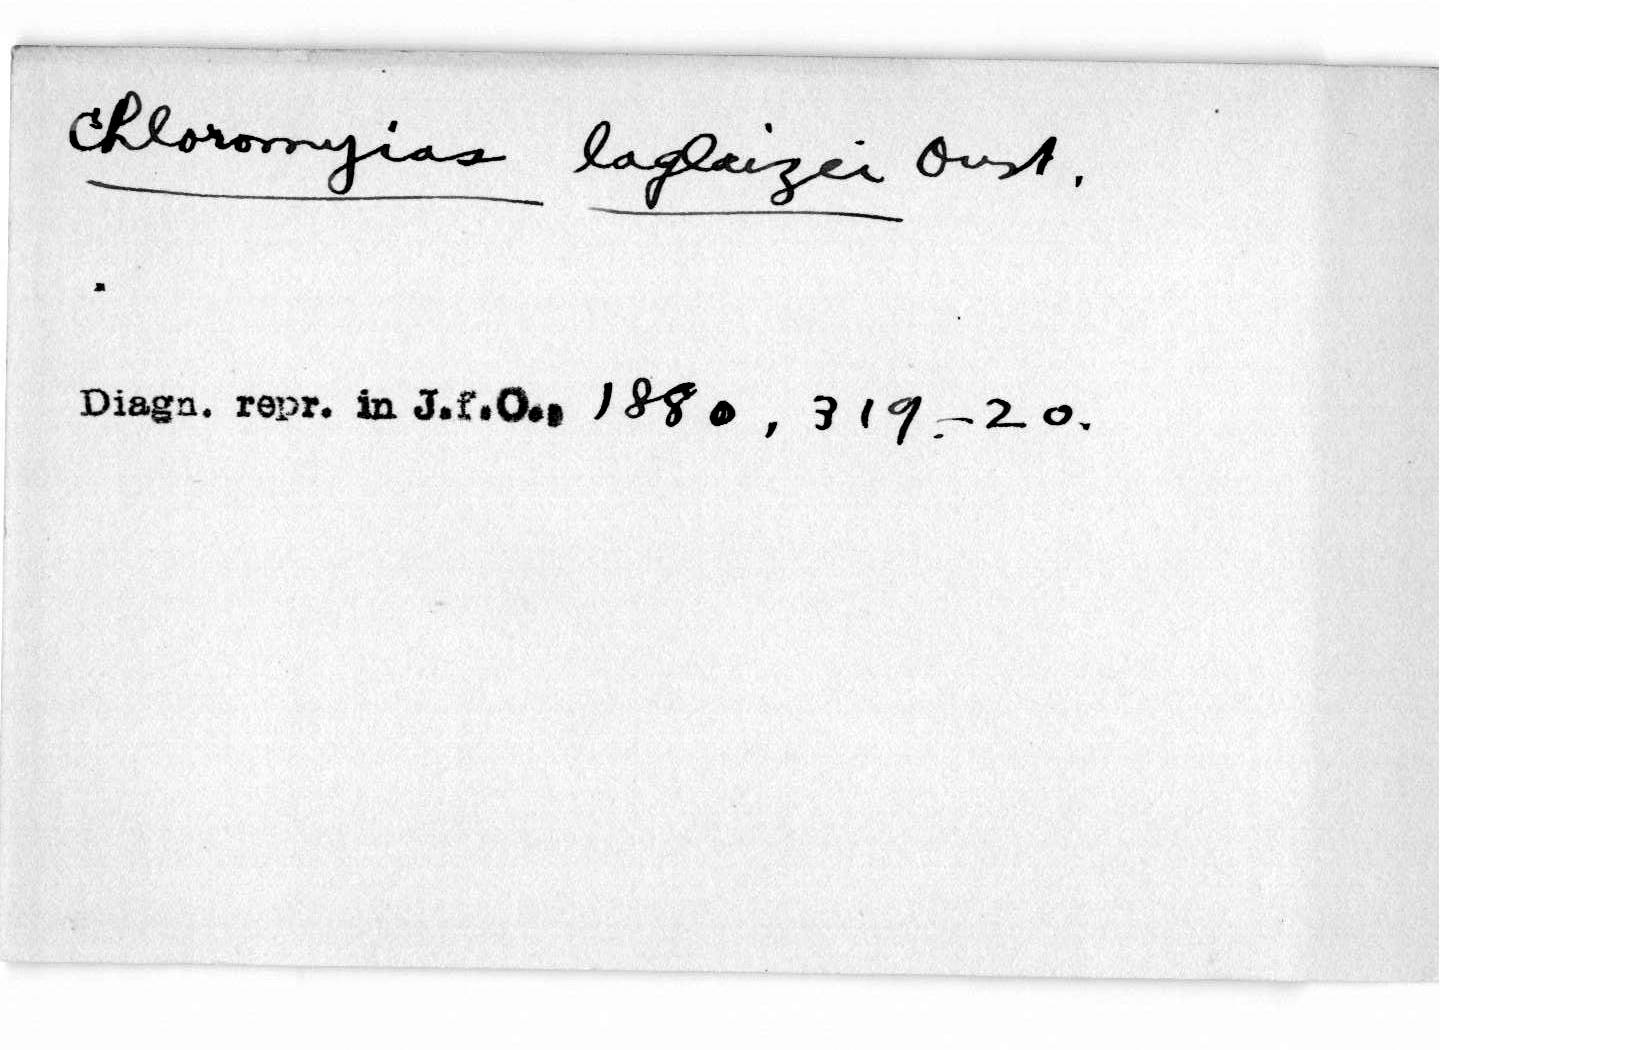 Chloromyias laglaizei Oust.
Diagn. repr. in J.f.O., 1880, 319-20.